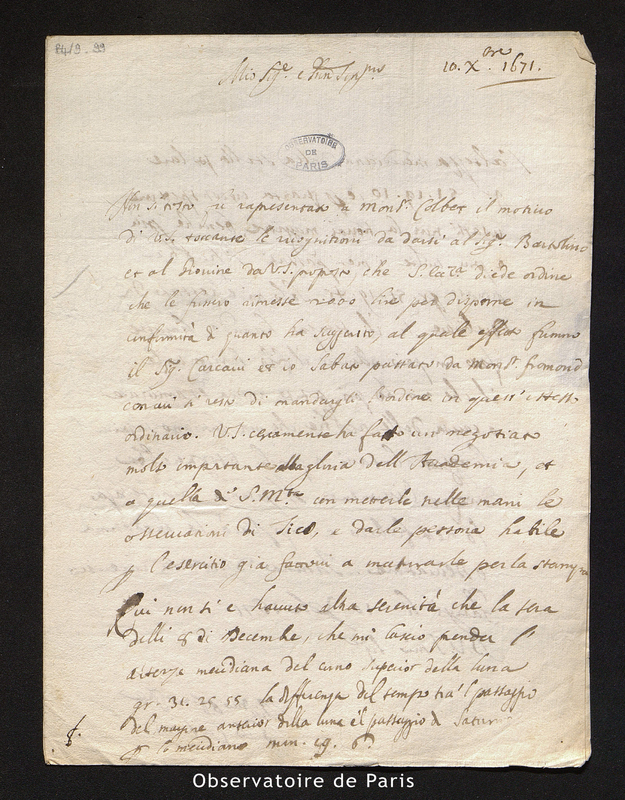 B4/9. 99
Mio Sigr. e
10. Xbre 1671.
OBSERVATOIRE
DE
PARIS
Non si tosto, si rapresentato a Monsr. Colbert il motivo
di V.S. toccante le ricognitioni da darsi al Sigr. Bartolino
et al Giovine da V.S. proposto, che diede ordine
che le fussero rimesse lire per disporne in
conformità di quanto ha suggerito, al quale effetto fummo
il Sigr. Carcavi et io Sabato passato da Monsr. fromond
con cui si restò di mandargli l'ordine in quest' istesso
ordinario. V.S. certamente ha fatto un negotiato
molto importante alla gloria dell'Academia, et
a quella di S. Mtà con metterle nelle mani le
osservationi di Tico, e darle persona habile
p l'esercitio già a maturarle per la stampa
Qui non si è havuto altra serenità che la sera
delli 8 di Decembre, che mi lasciò prender l'
altezza meridiana del corno superior della luna
gr. 31. 25 55 la differenza del tempo trà 'l passaggio
del margine anterior della luna e'l passaggio di Saturno
p lo meridiano min. 19. 6"
Observatoire de Paris